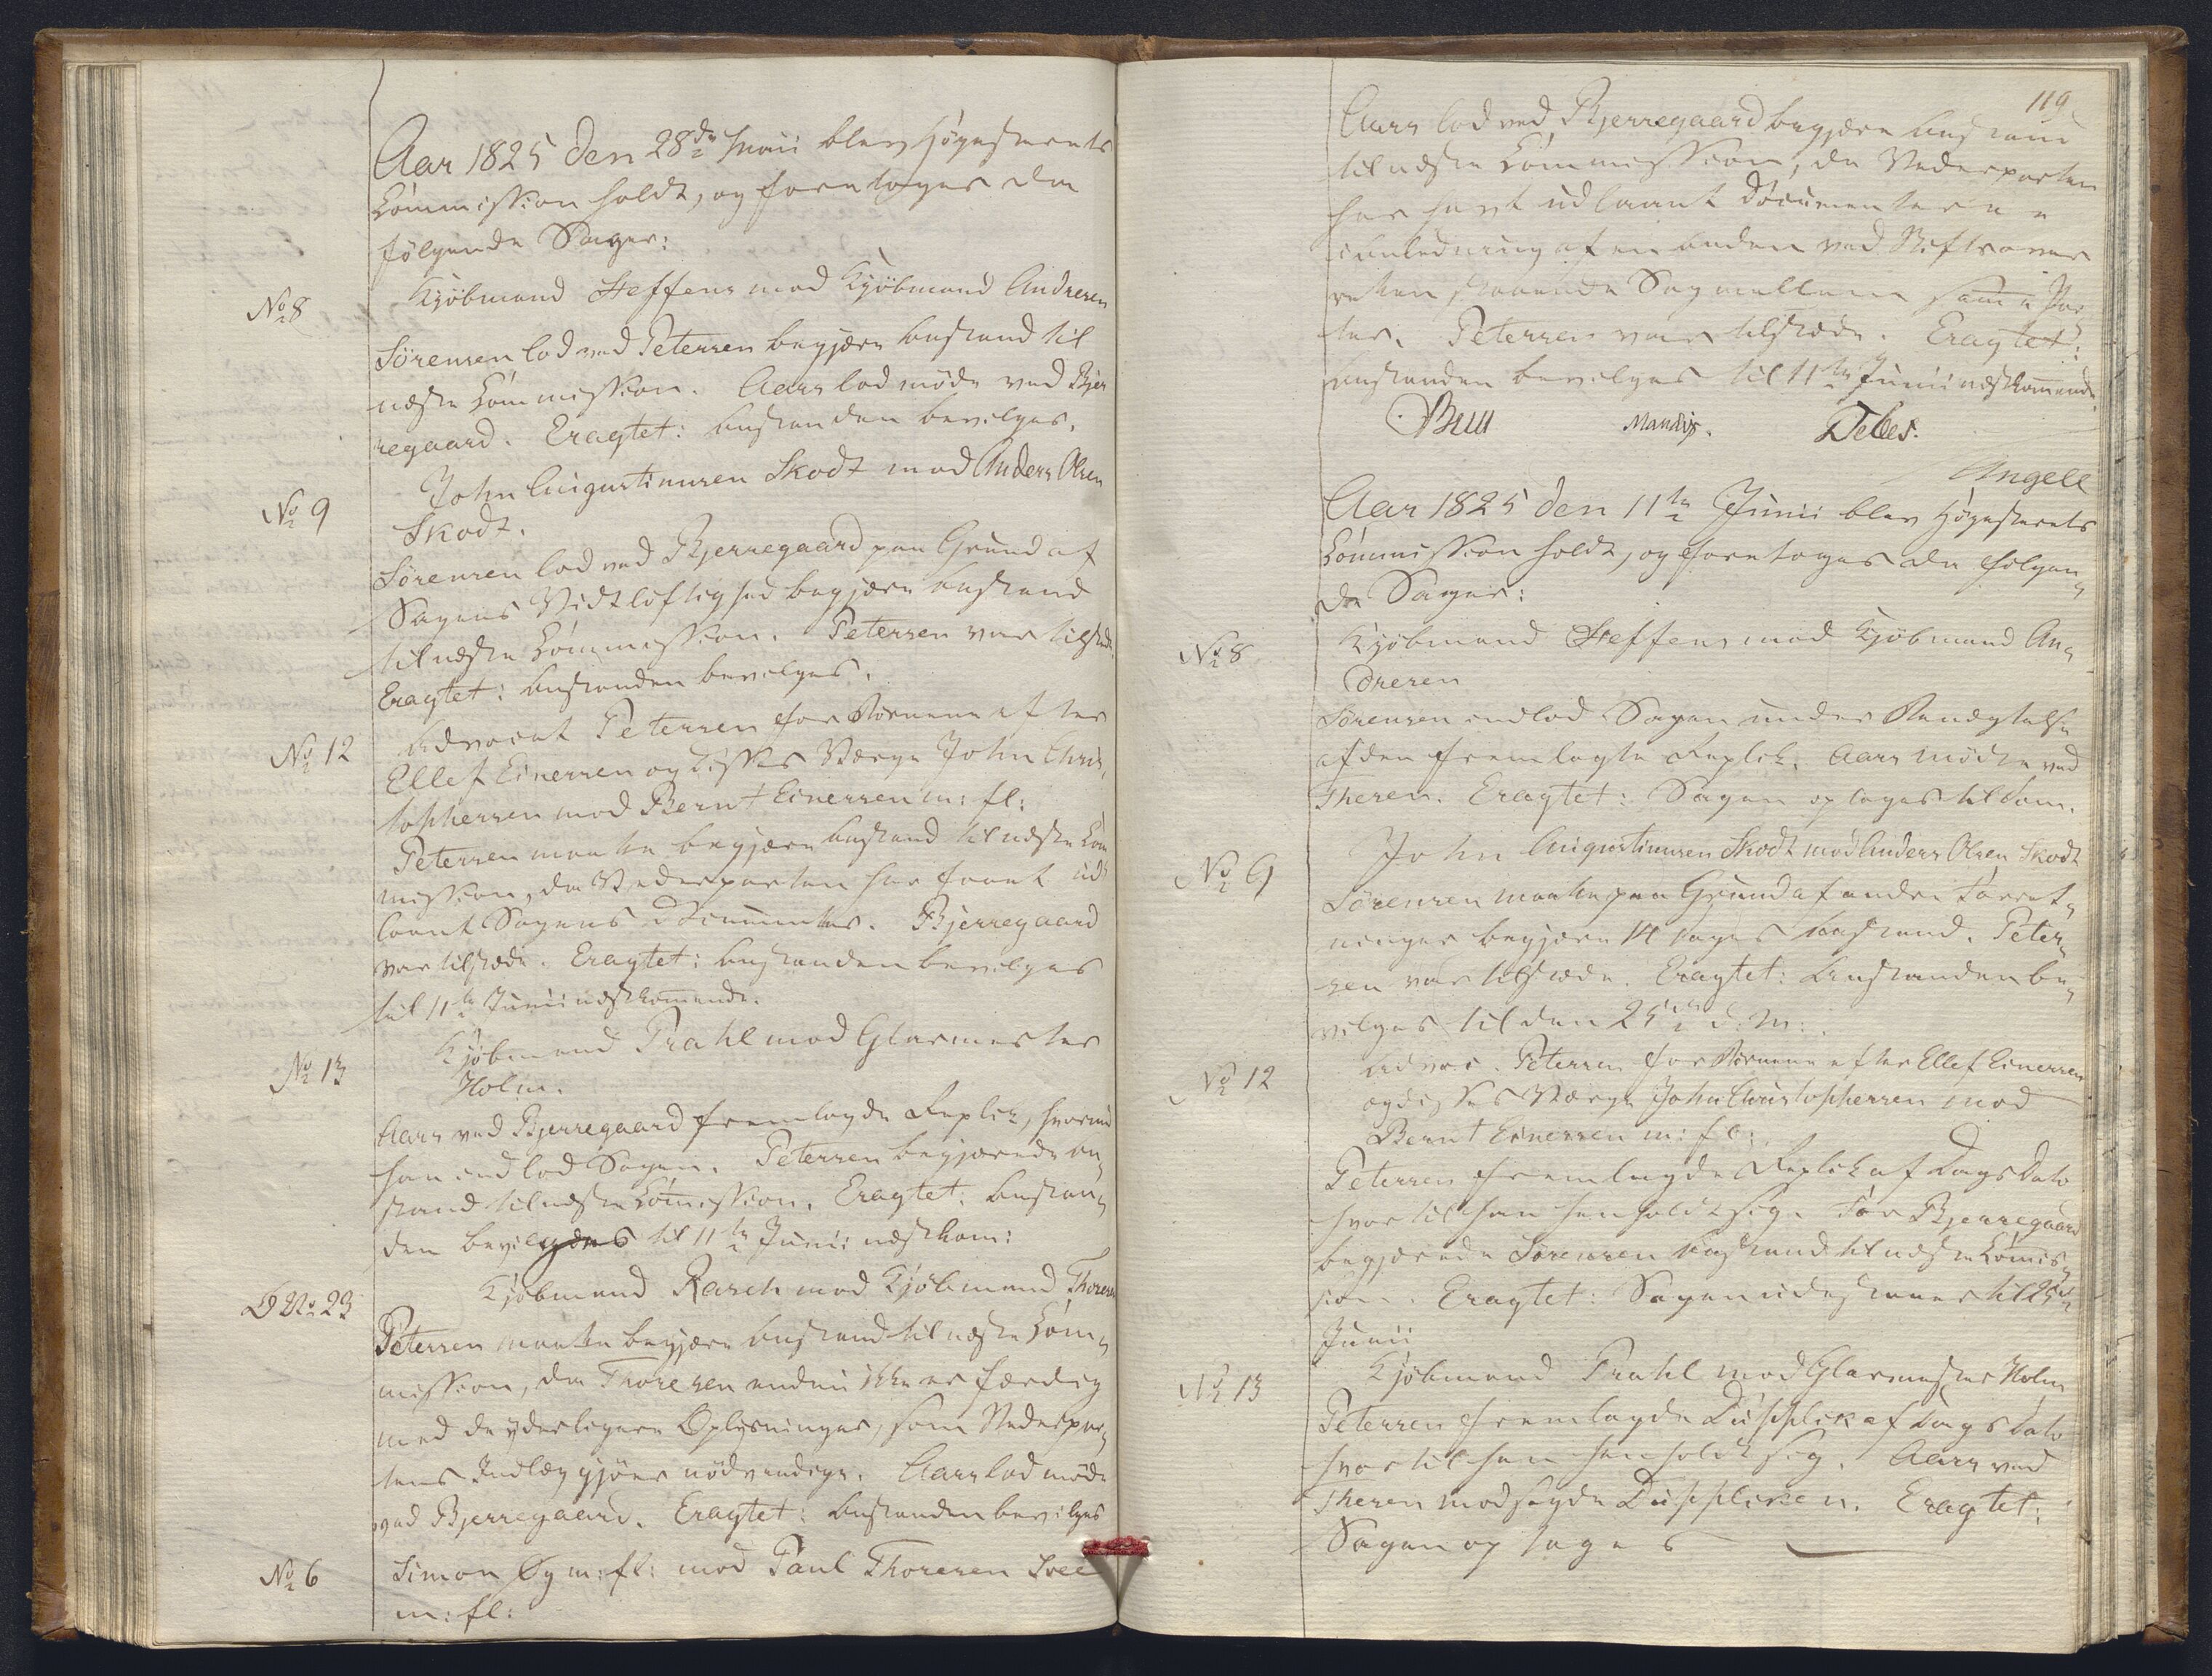 Aar 1825 den 28de Maii blev Høyesterets
Commission holdt, og foretoges da
følgende Sager:
No 8
Kjøbmand Steffens mod Kjøbmand Andresen
Sørensen lod ved Petersen begjære Anstand til
næste Commission. Aars lod møde ved Bjer
regaard. Eragtet: Anstanden bevilges.
No 9
John Augustinusen Skodt mod Anders Olsen
Skodt.
Sørensen lod ved Bjerregaard paa Grund af
Sagens Vidtløftighed begjære Anstand
til næste Commission. Petersen var tilstede.
Eragtet: Anstanden bevilges.
No 12
Advocat Petersen for Børnene efter
Ellef Einersen og disses Værge John Chris,
tophersen mod Bernt Einersen m: fl:
Petersen maatte begjære Anstand til næste Com
mission, da Vederparten har faaet ud
laant Sagens Documenter. Bjerregaard
var tilstede. Eragtet: Anstanden bevilges
til 11te Junii næstkommende.
No 13
Kjøbmand Prahl mod Glarmester
Holm.
Aars ved Bjerregaard fremlagde Replik, hvorved
han indlod Sagen. Petersen begjærede An,
stand til næste Commission. Eragtet: Anstan,
den bevilges til 11te Junii næstkom:
No 23
Kjøbmand Rasch mod Kjøbmand Thoresen
Petersen maatte begjære Anstand til næste Com,
mission, da Thoresen endnu ikke er færdig
med de yderligere Oplysninger, som Vederpar,
tens Indlæg gjøre nødvendige. Aars lod møde
ved Bjerregaard. Eragtet: Anstanden bevilges
No 6
Simon Øy m: fl: mod Paul Thoresen
m: fl:
119
Aars lod ved Bjerregaard begjære Anstand
til næste Commission, da Vederparten
har havt udlaant Documenterne
i Anledning af en anden ved Stiftsover
retten svævende Sag mellem samme Par
ter. Petersen var tilstede. Eragtet:
Anstanden bevilges til 11te Junii næstkommende.
Bull Mandix. Debes.
Angell
Aar 1825 den 11te Junii blev Høyesterets
Commission holdt, og foretoges da følgen,
de Sager:
No 8
Kjøbmand Steffens mod Kjøbmand An,
dresen
Sørensen indlod Sagen under Benægtelse
af den fremlagte Replik. Aars mødte ved
Thesen. Eragtet: Sagen optages til Dom.
No 9
John Augustinusen Skodt mod Anders Olsen Skodt
Sørensen maatte paa Grund af andre Forret,
ninger begjære 14 Dages Anstand. Peter,
sen var tilstede. Eragtet: Anstanden be,
vilges til den 25de d: M:.
No 12
Advoc. Petersen for Børnene efter Ellef Einersen
og disses Værge John Christophersen mod
Bernt Einersen m: fl:
Petersen fremlagde Replik af Dags Dato
hvortil han henholdt sig. For Bjerregaard
begjærede Sørensen Anstand til næste Commis,
sion. Eragtet: Sagen udestaaer til 25de
Junii
No 13
Kjøbmand Prahl mod Glarmester Holm
Petersen fremlagde Dupplik af Dags Dato
hvortil han henholdt sig. Aars ved
Thesen modsagde Dupplikken. Eragtet:
Sagen optages